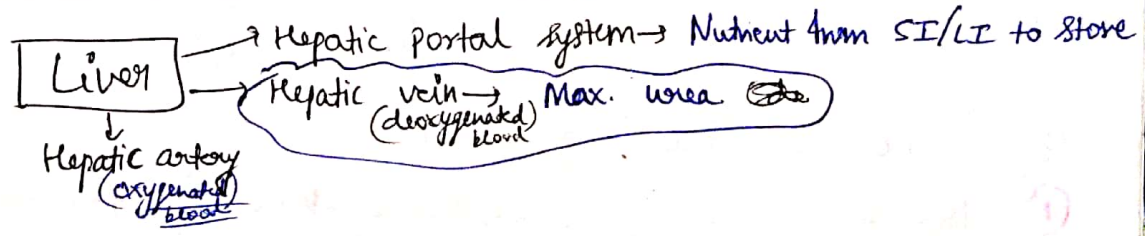 Liver → Hepatic portal system → Nutrient from SI/LI to store
→ Hepatic vein → Max. urea
(deoxygenated blood)
Hepatic artery
(oxygenated
blood